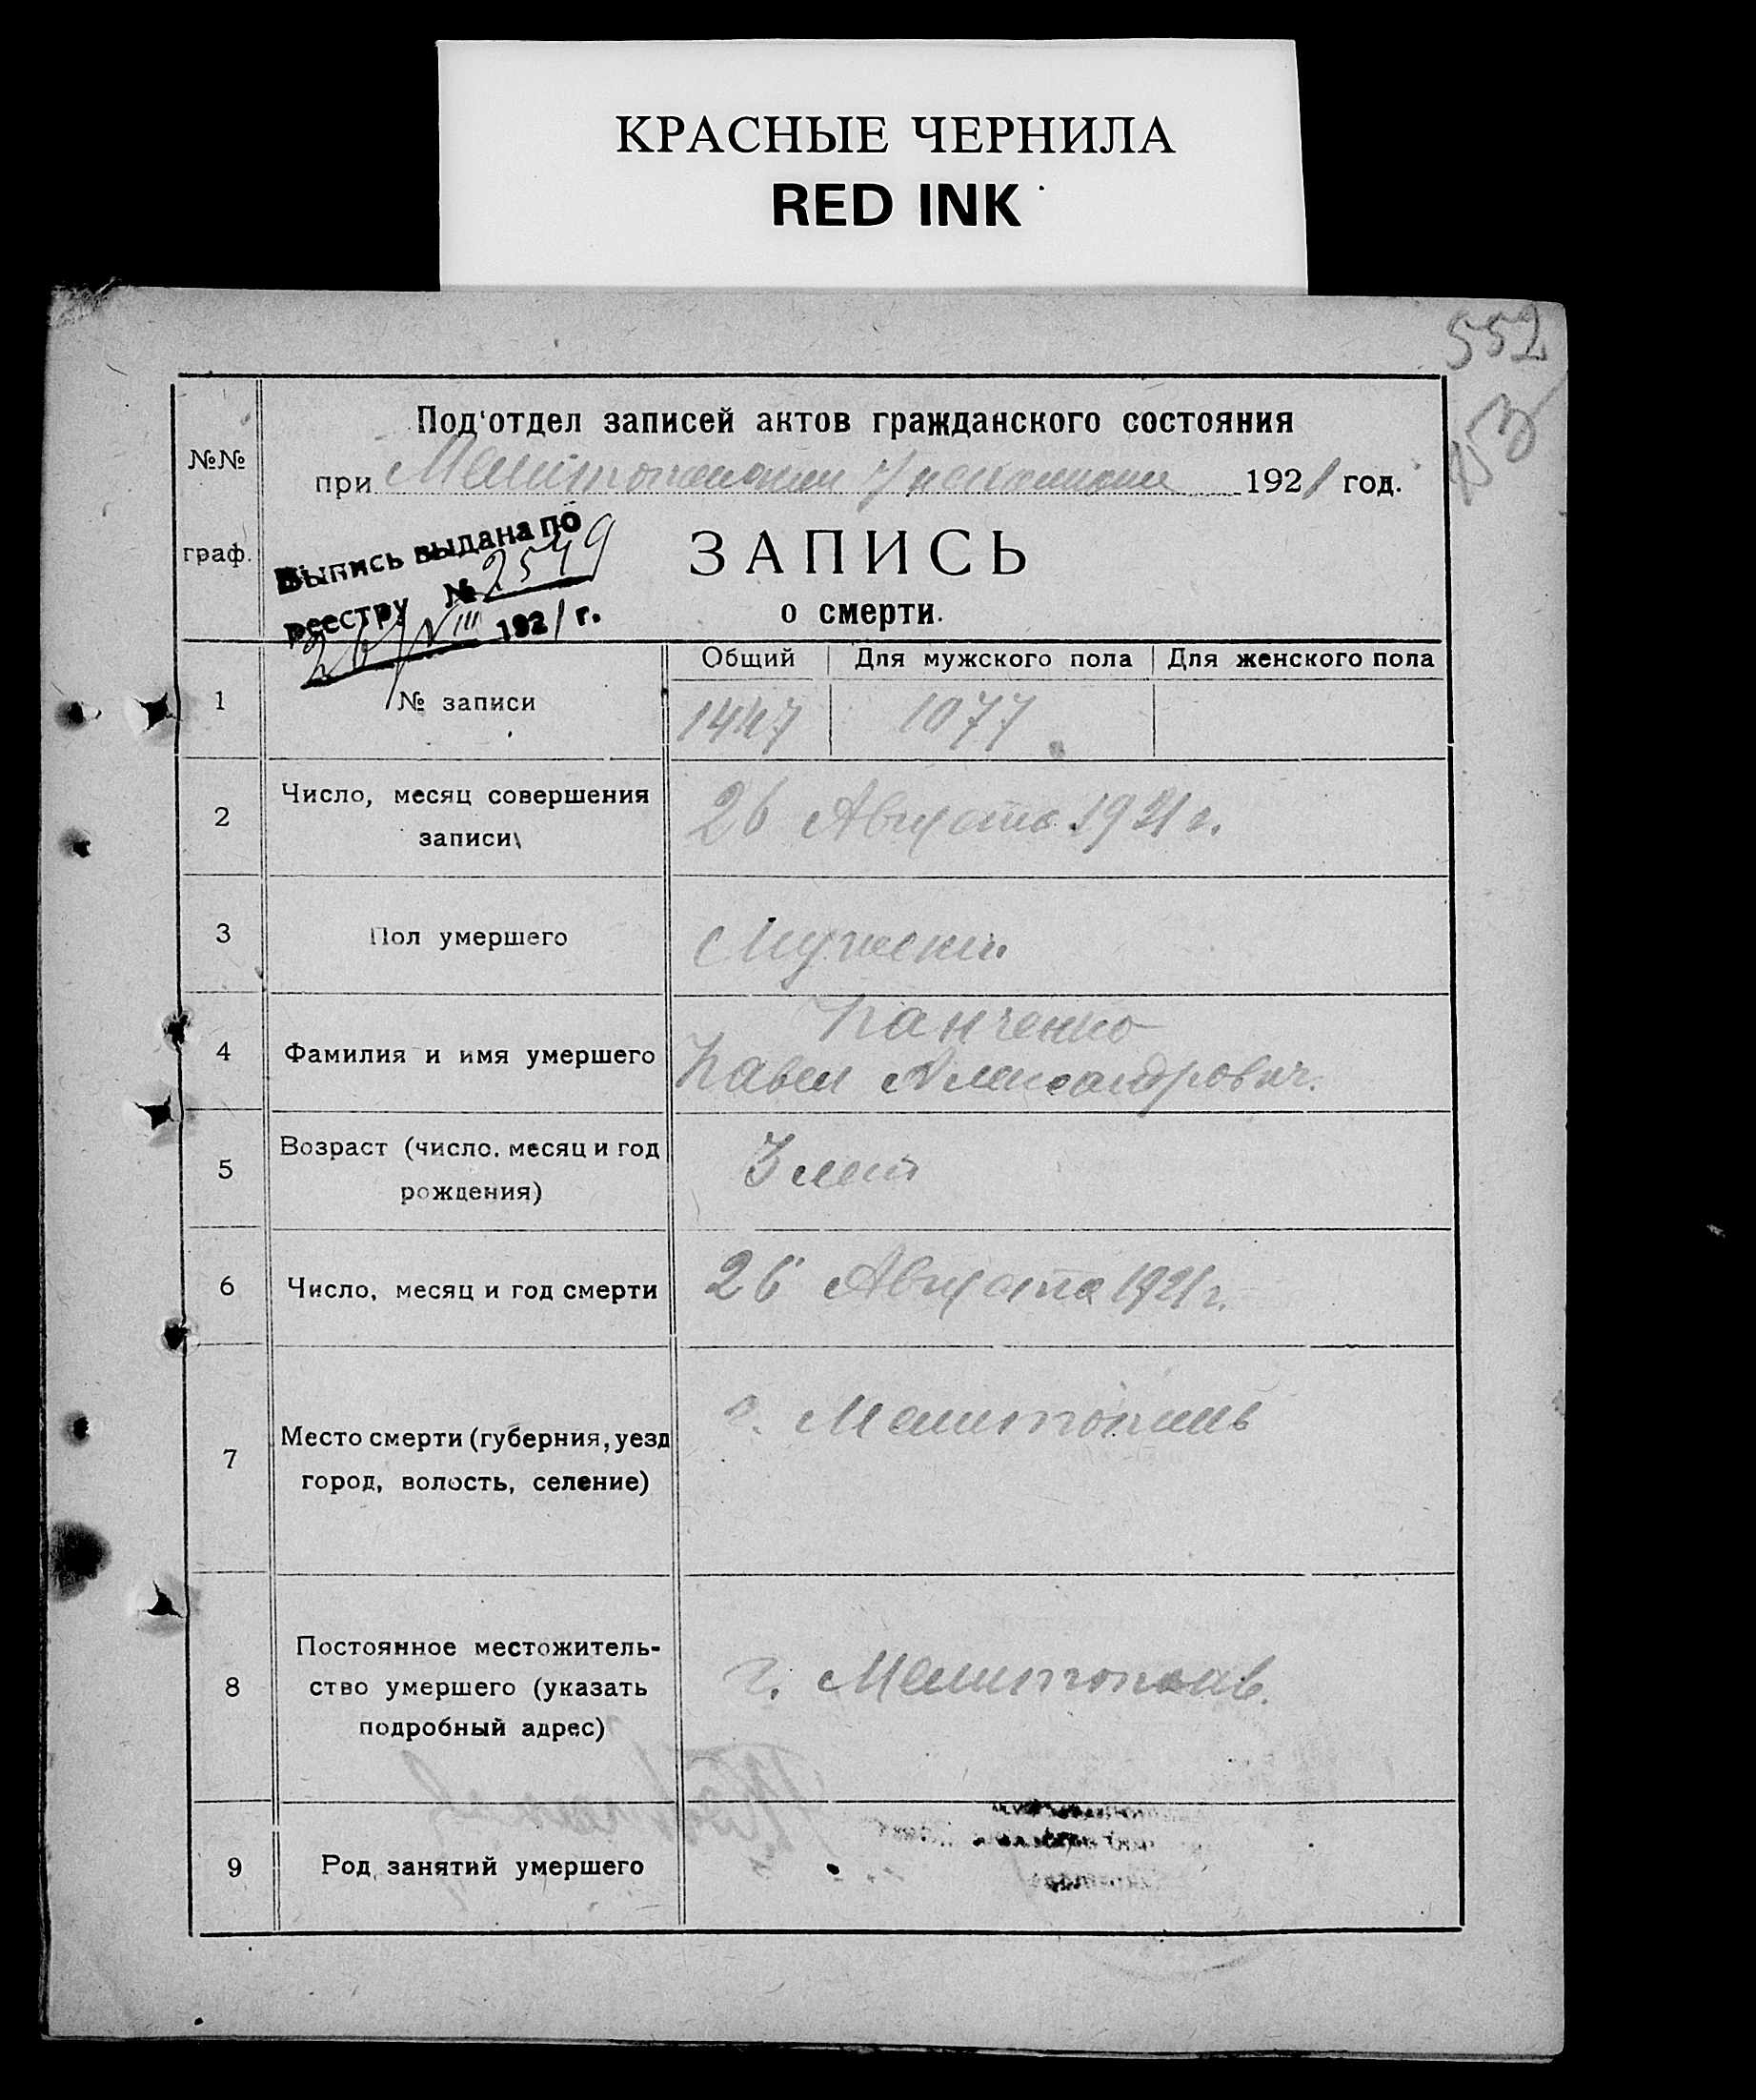 КРАСНЫЕ ЧЕРНИЛА
RED INK
552
153
Под'отдел записей актов гражданского состояния
№№
при Мелитопольском Уисполкоме 1921 год.
граф.
Выпись выдана по
реестру № 2549
26/VIII 1921 г.
ЗАПИСЬ
о смерти.
Общий Для мужского пола Для женского пола
1 № записи 1447 1077
2 Число, месяц совершения
записи
26 Августа 1921 г.
3 Пол умершего Мужской.
4 Фамилия и имя умершего Панченко
Павел Александрович.
5 Возраст (число. месяц и год
рождения)
3 лет
6 Число, месяц и год смерти 26 Августа 1921 г.
7 Место смерти (губерния, уезд
город, волость, селение)
г. Мелитополь
8 Постоянное местожитель-
ство умершего (указать
подробный адрес)
г. Мелитополь.
9 Род занятий умершего